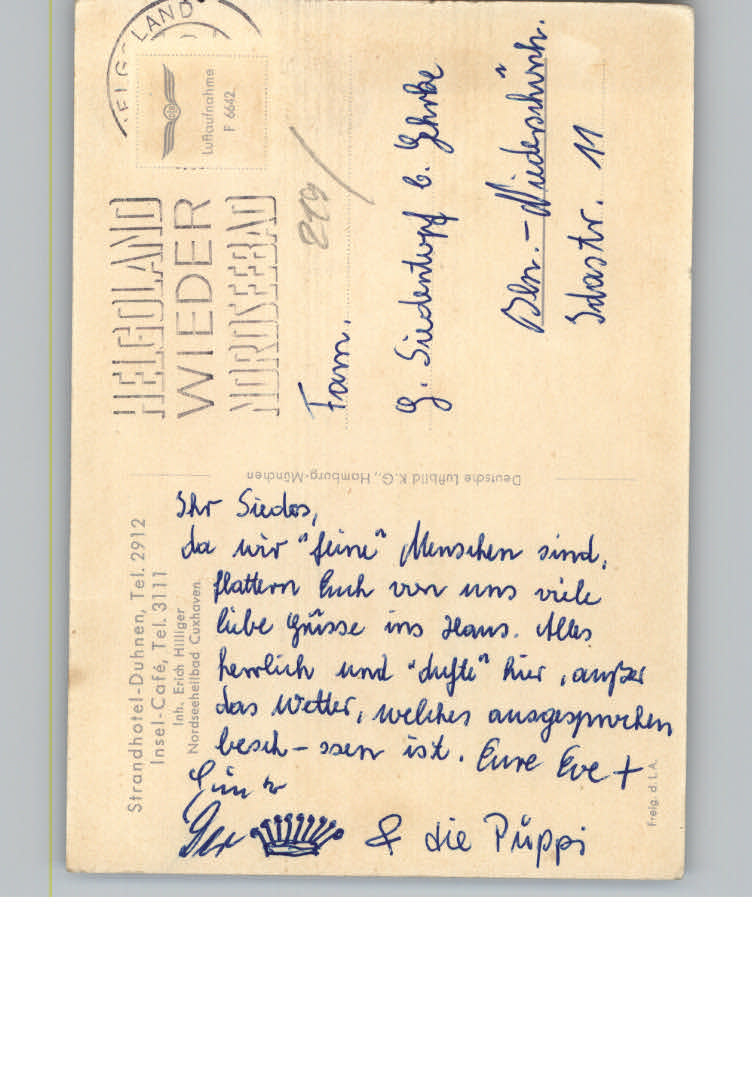 HELGOLAND
Luftaufnahme
F 6642
HELGOLAND
WIEDER
NORDSEEBAD
219
Fam.
G. Siedentopf b. Gehrke
Bln.-Niederschönh.
Idastr. 11
Deutsche Luftbild K.G., Hamburg-München
Strandhotel-Duhnen, Tel. 2912
Insel-Café, Tel. 3111
Inh. Erich Hilliger
Nordseeheilbad Cuxhaven
Ihr Siedos,
da wir "feine" Menschen sind,
flattern Euch von uns viele
liebe Grüsse ins Haus. Alles
herrlich und "dufte" hier, außer
das Wetter, welches ausgesprochen
besch-ssen ist. Eure Eve +
Der & die Püppi
Freig. d. L.A.